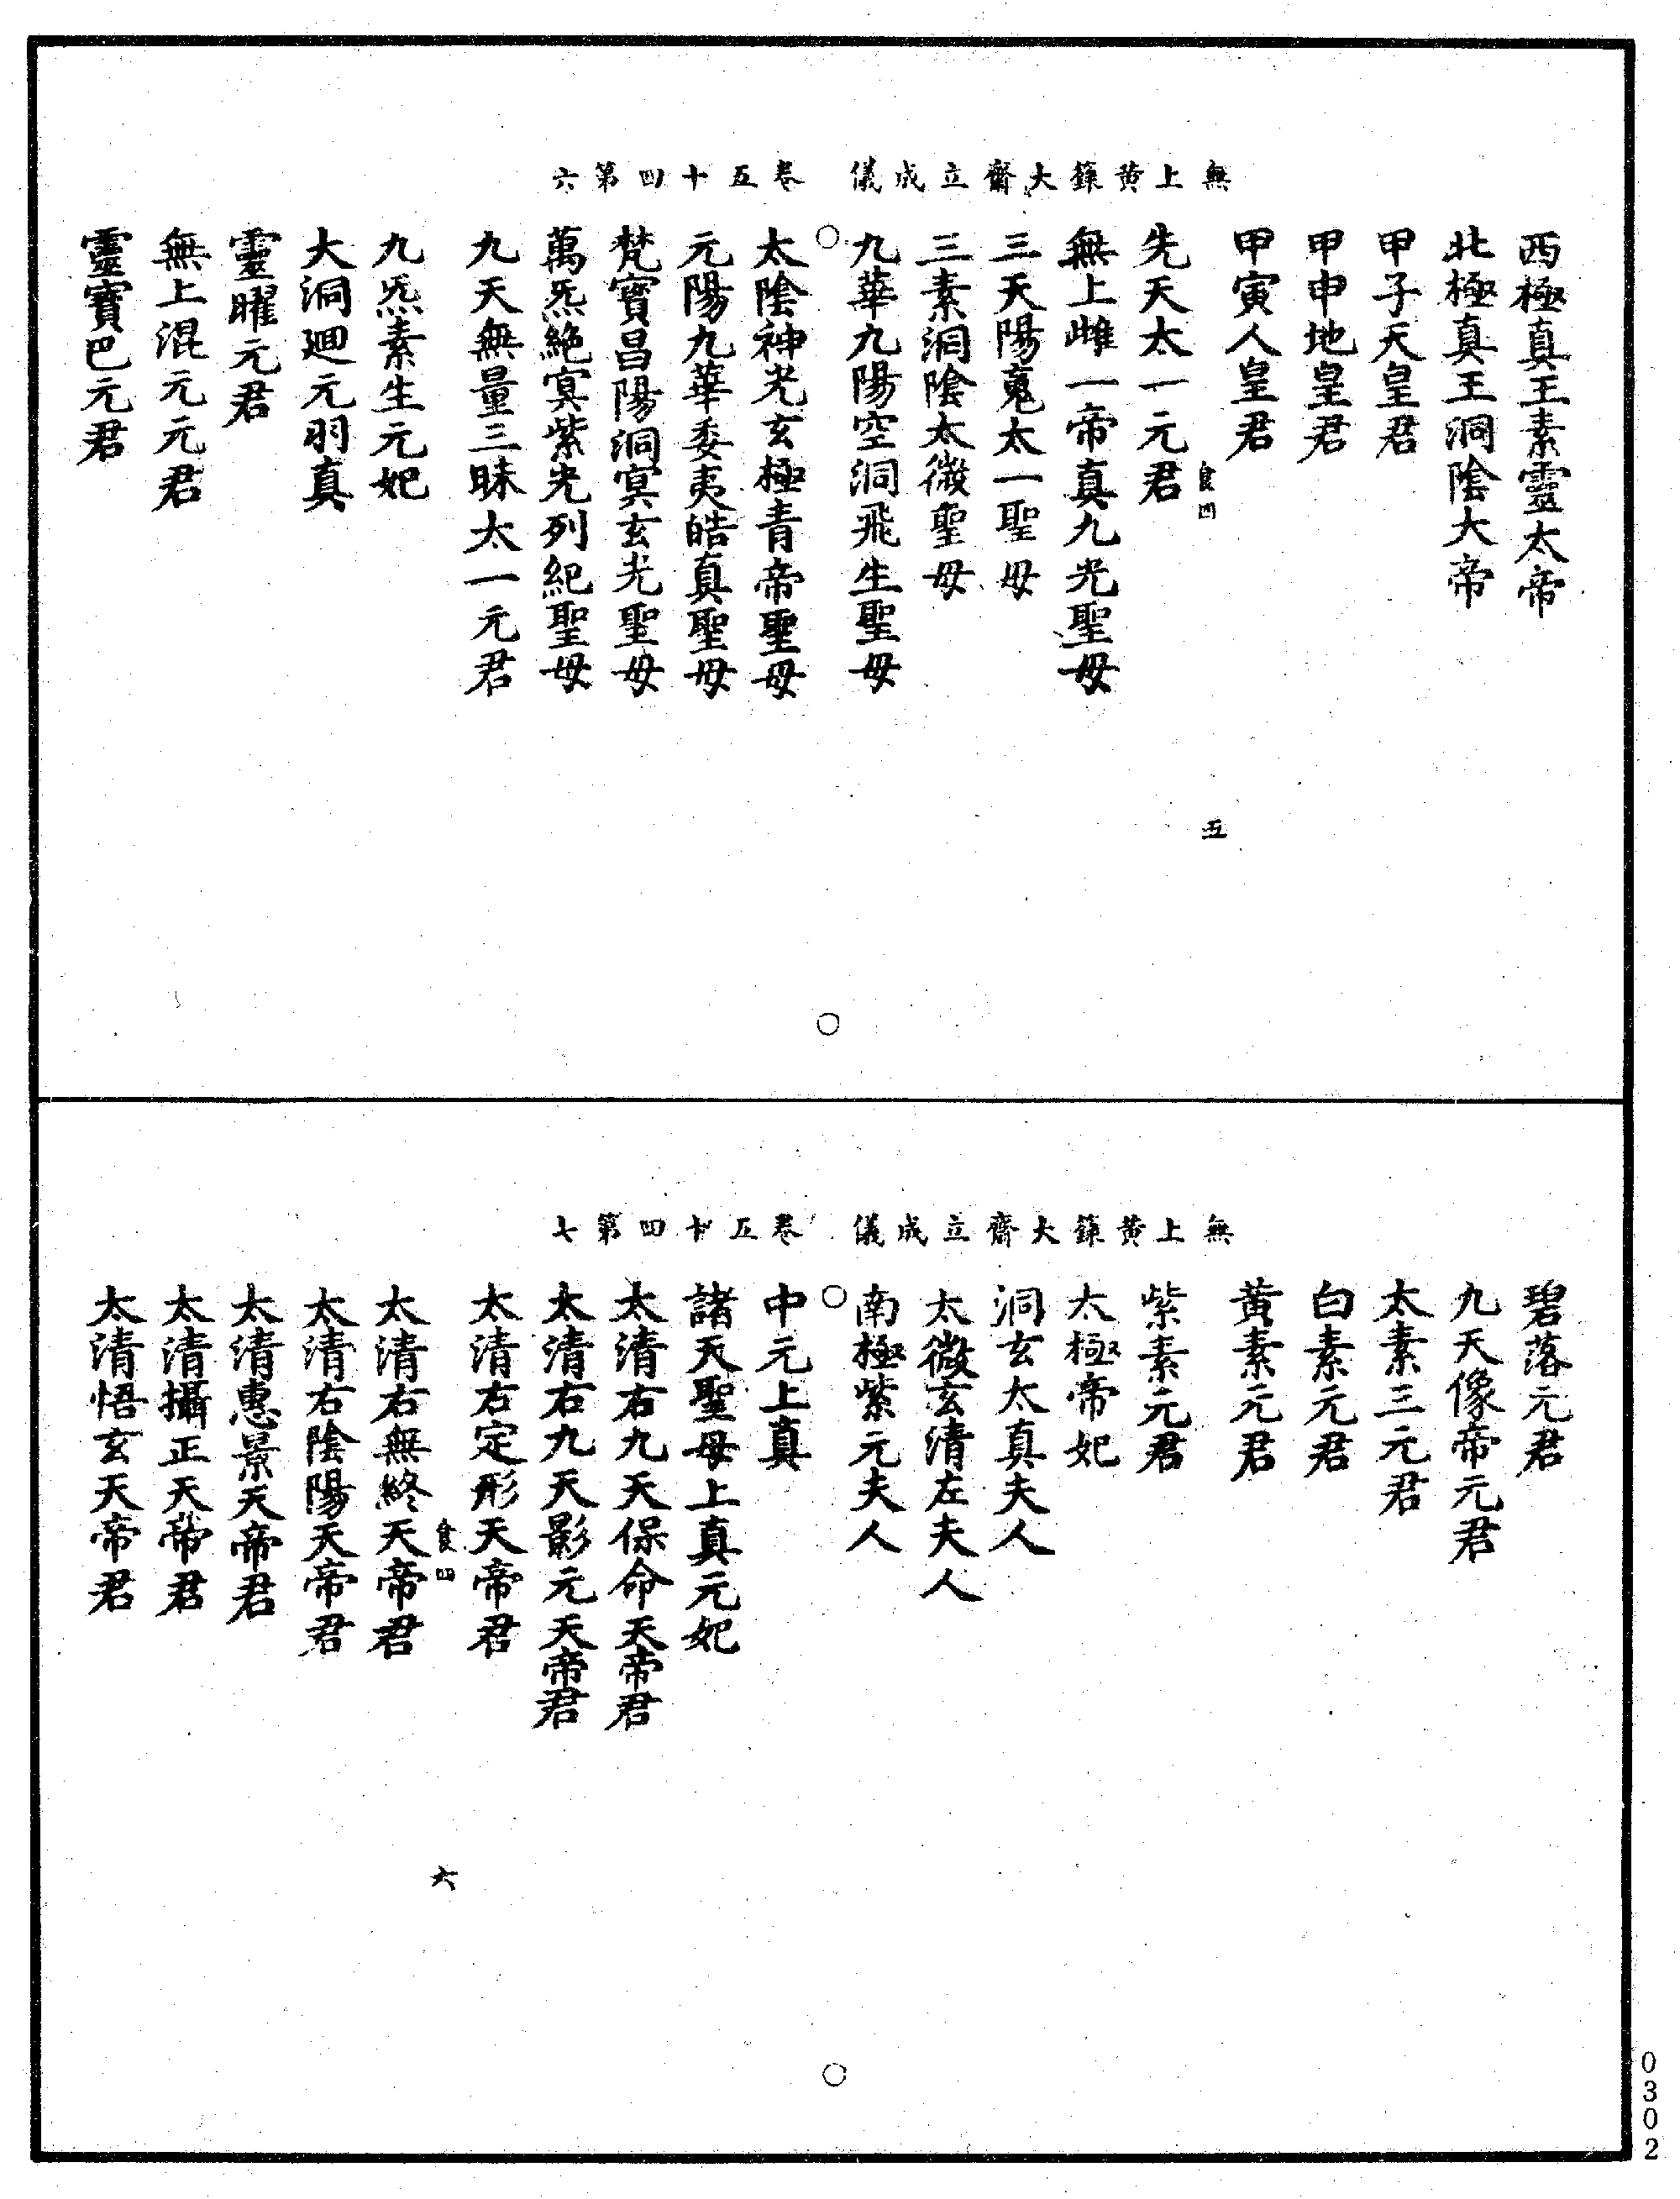 無上黃籙大齋立成儀　卷五十四第六
西極真王素靈太帝
北極真王洞陰大帝
甲子天皇君
甲申地皇君
甲寅人皇君
食四　五
先天太一元君
無上雌一帝真九光聖母
三天陽嵬太一聖母
三素洞陰太微聖母
九華九陽空洞飛生聖母
○　○
太陰神光玄極青帝聖母
元陽九華委夷皓真聖母
梵寶昌陽洞冥玄光聖母
萬炁絶冥紫光列紀聖母
九天無量三昧太一元君
九炁素生元妃
大洞迴元羽真
靈曜元君
無上混元元君
靈寶巴元君
無上黃籙大齋立成儀　卷五十四第七
碧落元君
九天像帝元君
太素三元君
白素元君
黃素元君
紫素元君
太極帝妃
洞玄太真夫人
太微玄清左夫人
南極紫元夫人
○　○
中元上真
諸天聖母上真元妃
太清右九天保命天帝君
太清右九天影元天帝君
太清右定形天帝君
食四　六
太清右無終天帝君
太清右陰陽天帝君
太清惠景天帝君
太清攝正天帝君
太清悟玄天帝君
0302